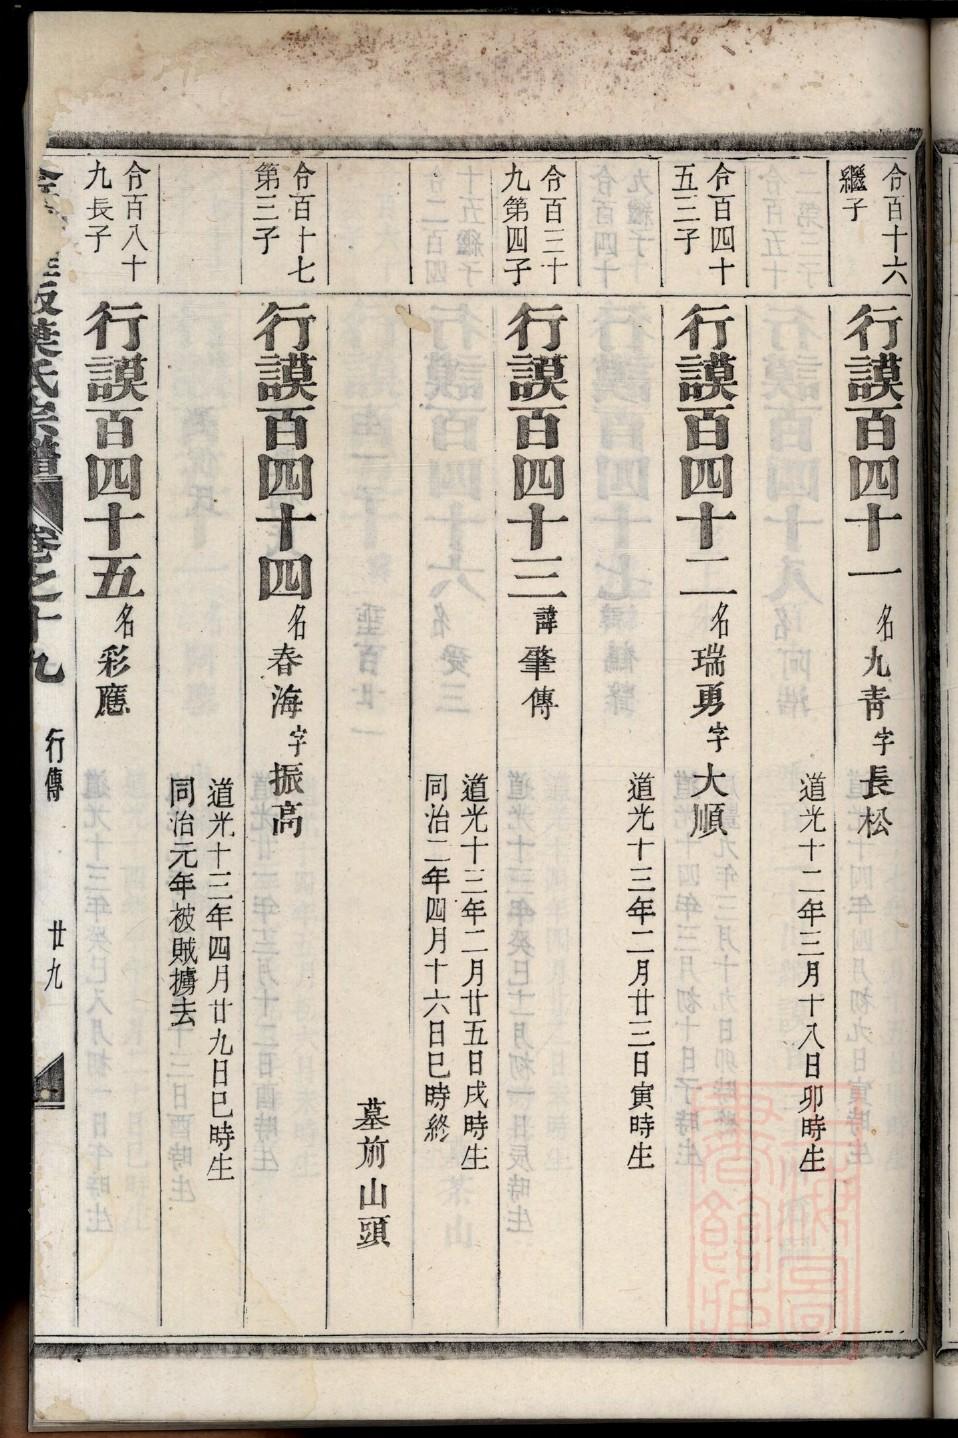 令百十六
繼子
行謨百四十一
名九青字長松
道光十二年三月十八日卯時生
令百四十
五三子
行謨百四十二
名瑞勇字大順
道光十三年二月廿三日寅時生
令百三十
九第四子
行謨百四十三
諱肇傳
道光十三年二月廿五日戌時生
同治二年四月十六日巳時終
墓前山頭
令百十七
第三子
行謨百四十四
名春海字振高
道光十三年四月廿九日巳時生
同治元年被賊擄去
令百八十
九長子
行謨百四十五
名彩應
葉氏宗譜
卷之十九
行傳
廿九